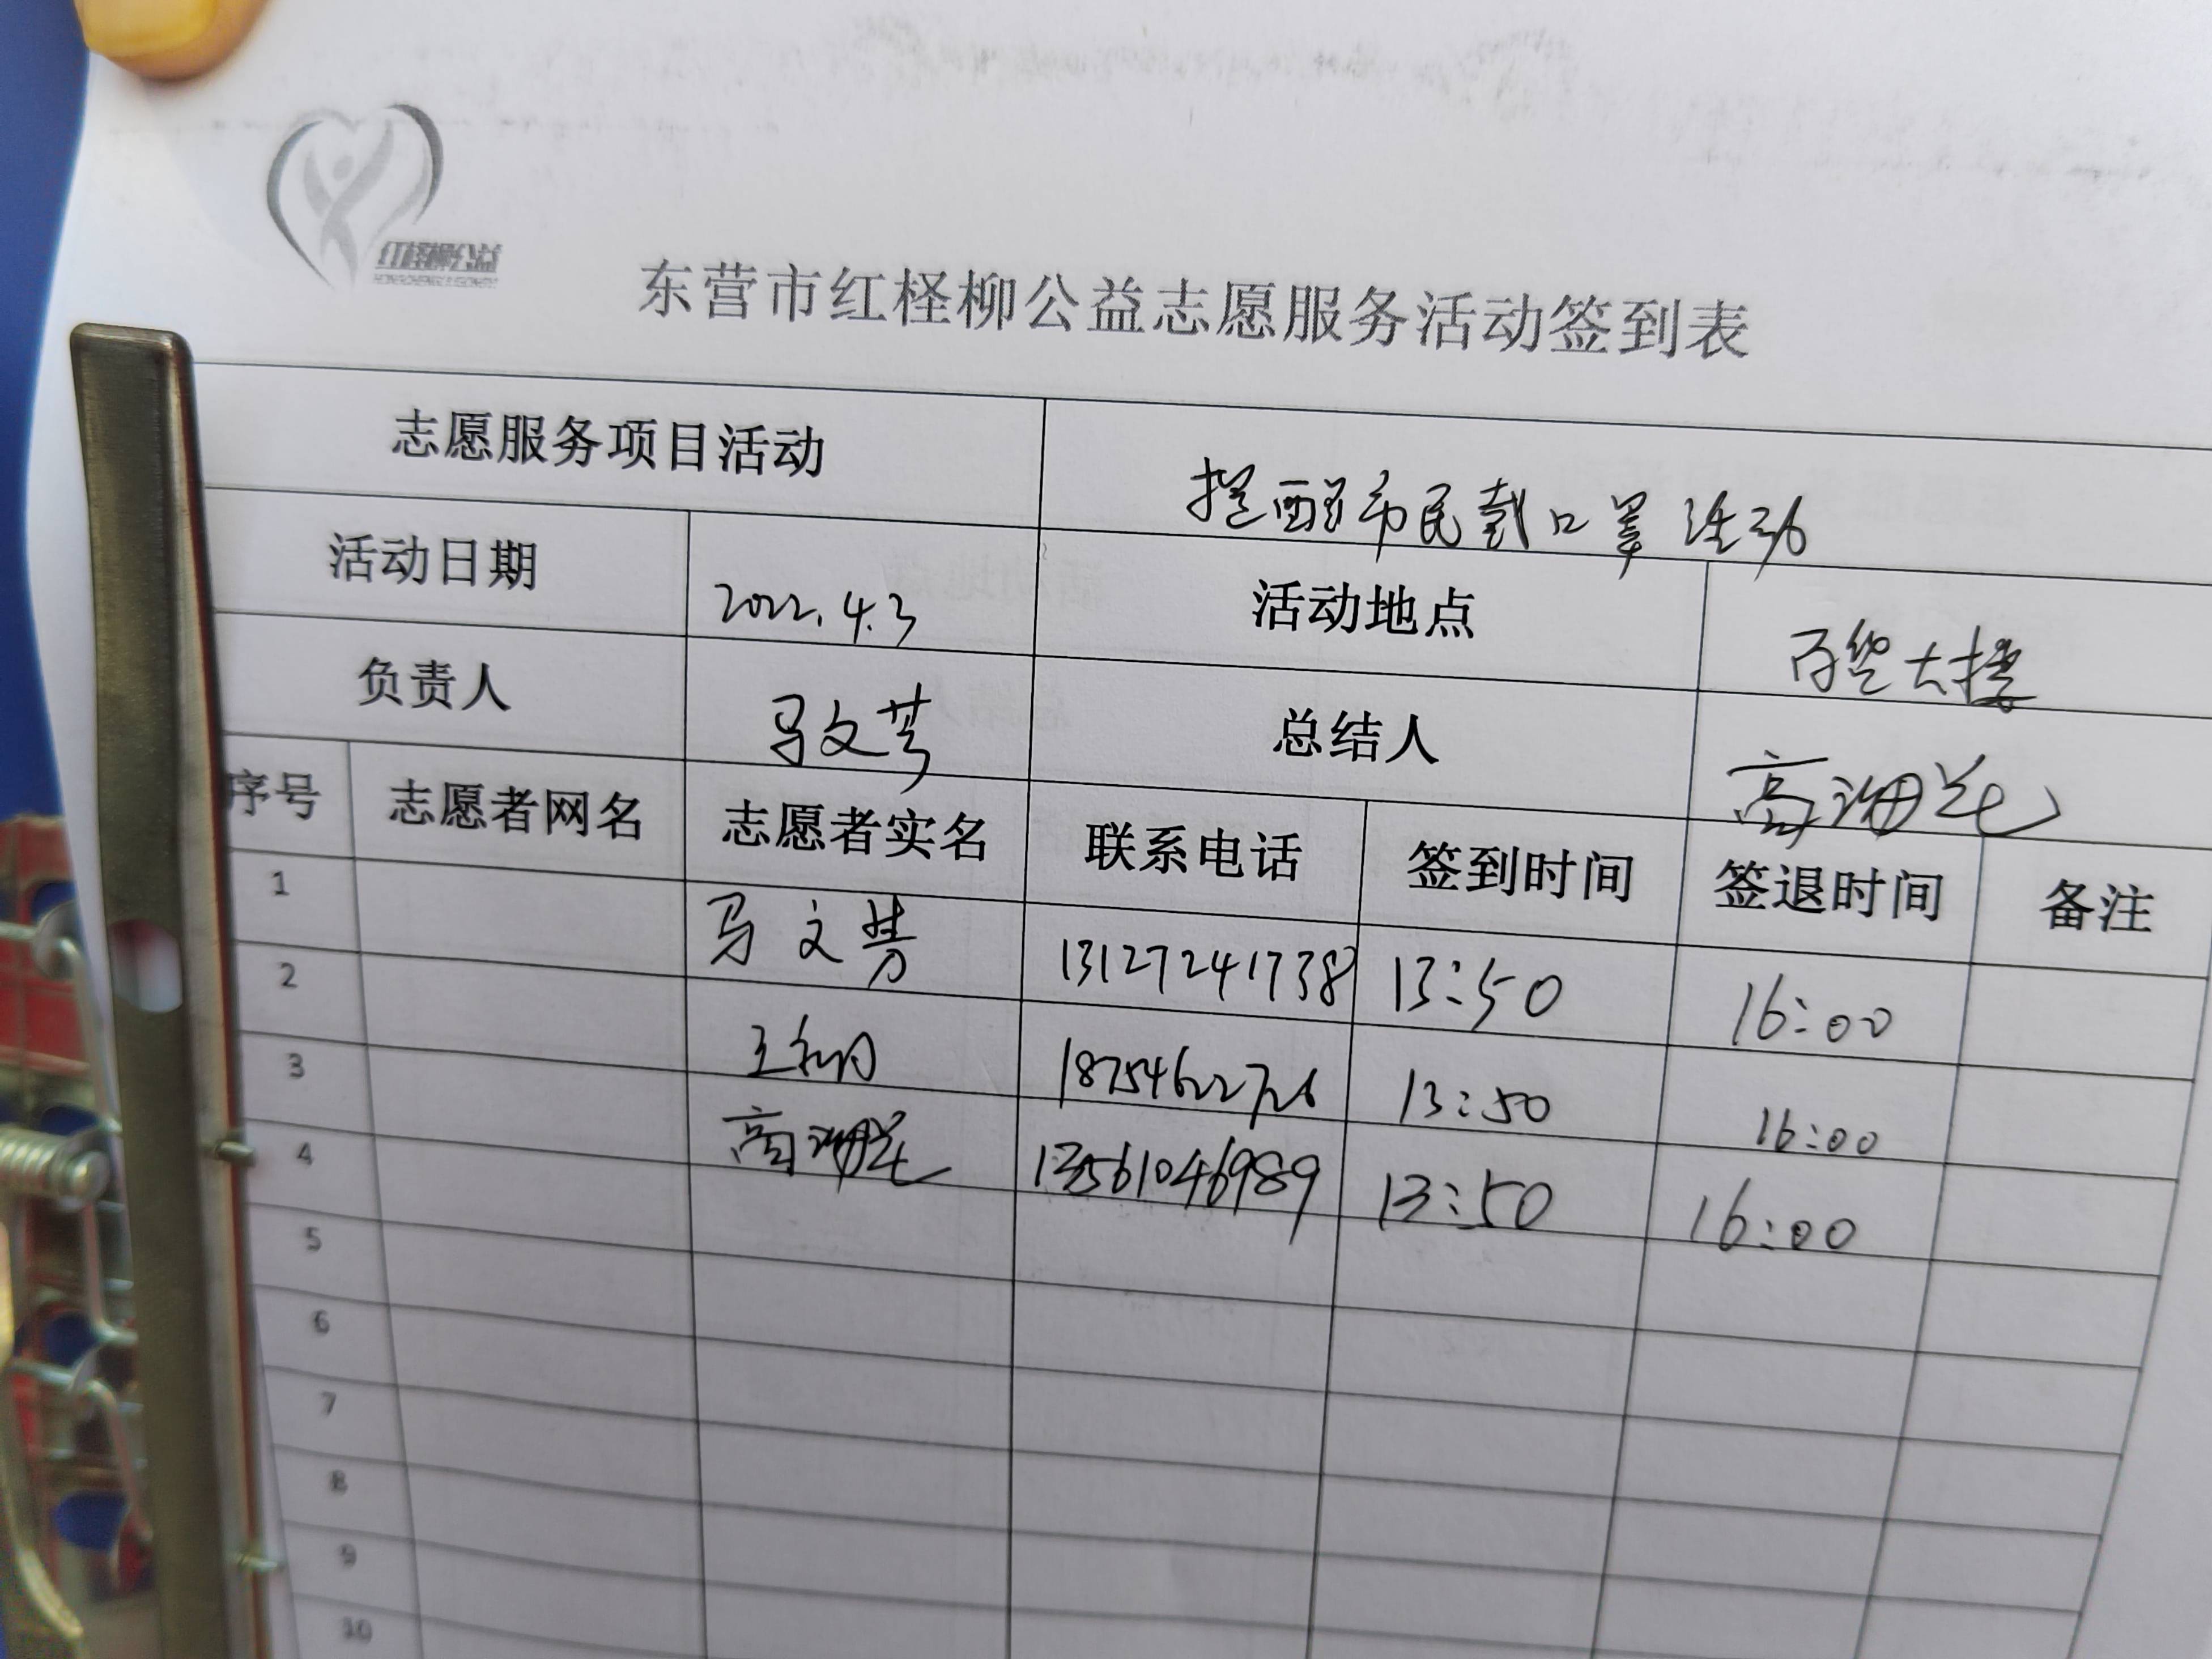 红柽柳公益
东营市红柽柳公益志愿服务活动签到表
志愿服务项目活动 提醒市民戴口罩活动
活动日期 2022.4.3 活动地点 百货大楼
负责人 马文芳 总结人 高海花
序号 志愿者网名 志愿者实名 联系电话 签到时间 签退时间 备注
1 马文芳 13127241738 13:50 16:00
2 王 18754622726 13:50 16:00
3 高海花 13561046989 13:50 16:00
4
5
6
7
8
9
10